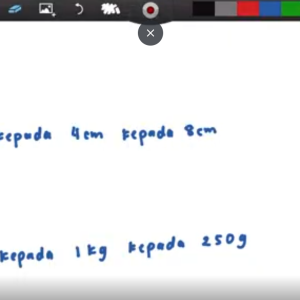 kepada 4 cm kepada 8 cm
kepada 1 kg kepada 250 g